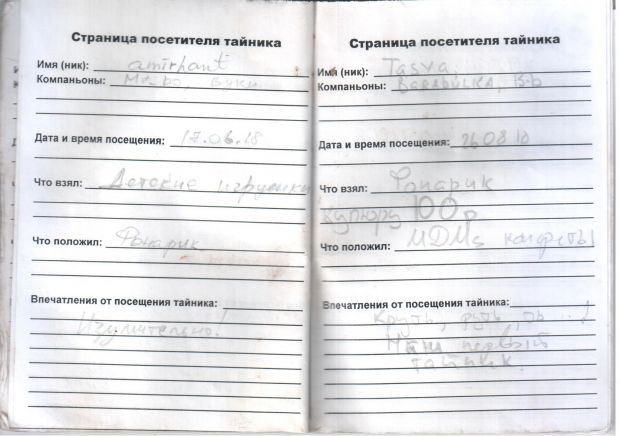 Страница посетителя тайника
Имя (ник): amirhant
Компаньоны:
Дата и время посещения: 17.06.18
Что взял: Детские игрушки
Что положил: Фонарик
Впечатления от посещения тайника:
Изумительно!
Страница посетителя тайника
Имя (ник): Tasya,
Компаньоны: BARADULKA,
Дата и время посещения: 26 08
Что взял: Фонарик
купюру 100 р
Что положил: MDMs конфеты
Впечатления от посещения тайника:
Круть, руть, ть...!
первый
тайник